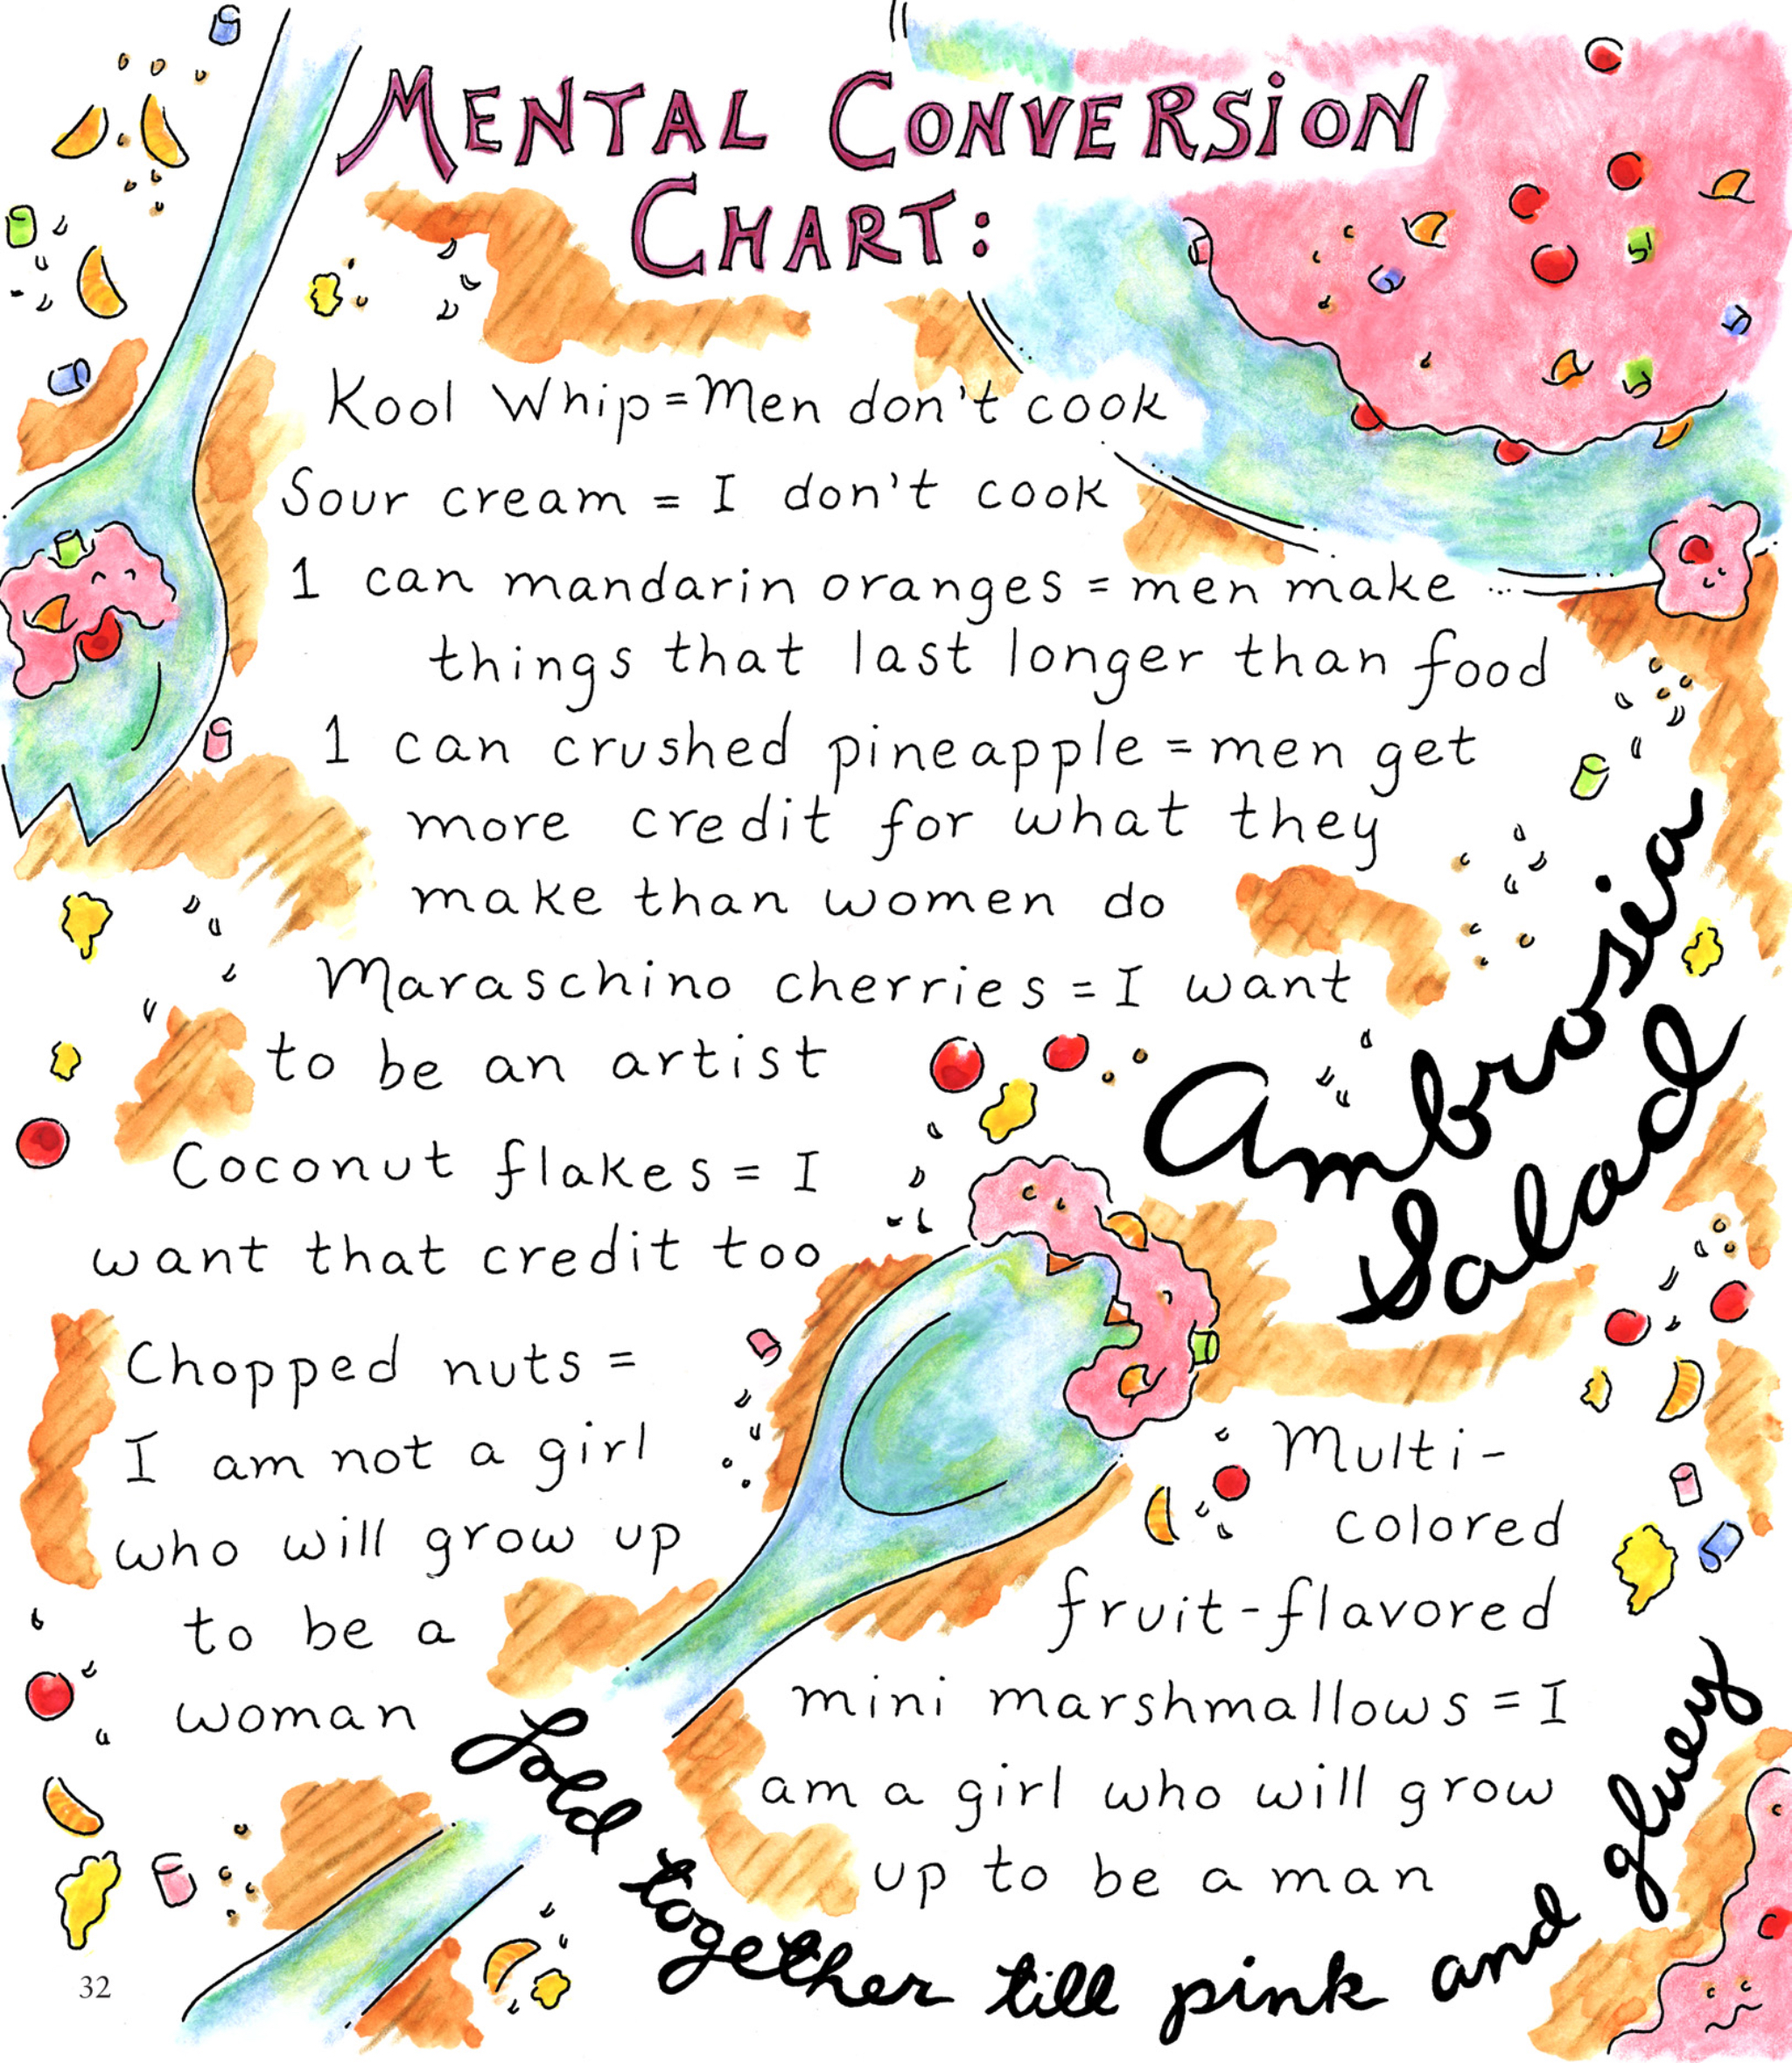 MENTAL CONVERSION
CHART:
Kool Whip = Men don't cook
Sour cream = I don't cook
1 can mandarin oranges = men make
things that last longer than food
1 can crushed pineapple = men get
more credit for what they
make than women do
Maraschino cherries = I want
to be an artist
Coconut flakes = I
want that credit too
Ambrosia
Salad
Chopped nuts =
I am not a girl
who will grow up
to be a
woman
Multi-
colored
fruit-flavored
mini marshmallows = I
am a girl who will grow
up to be a man
fold together till pink and gluey
32